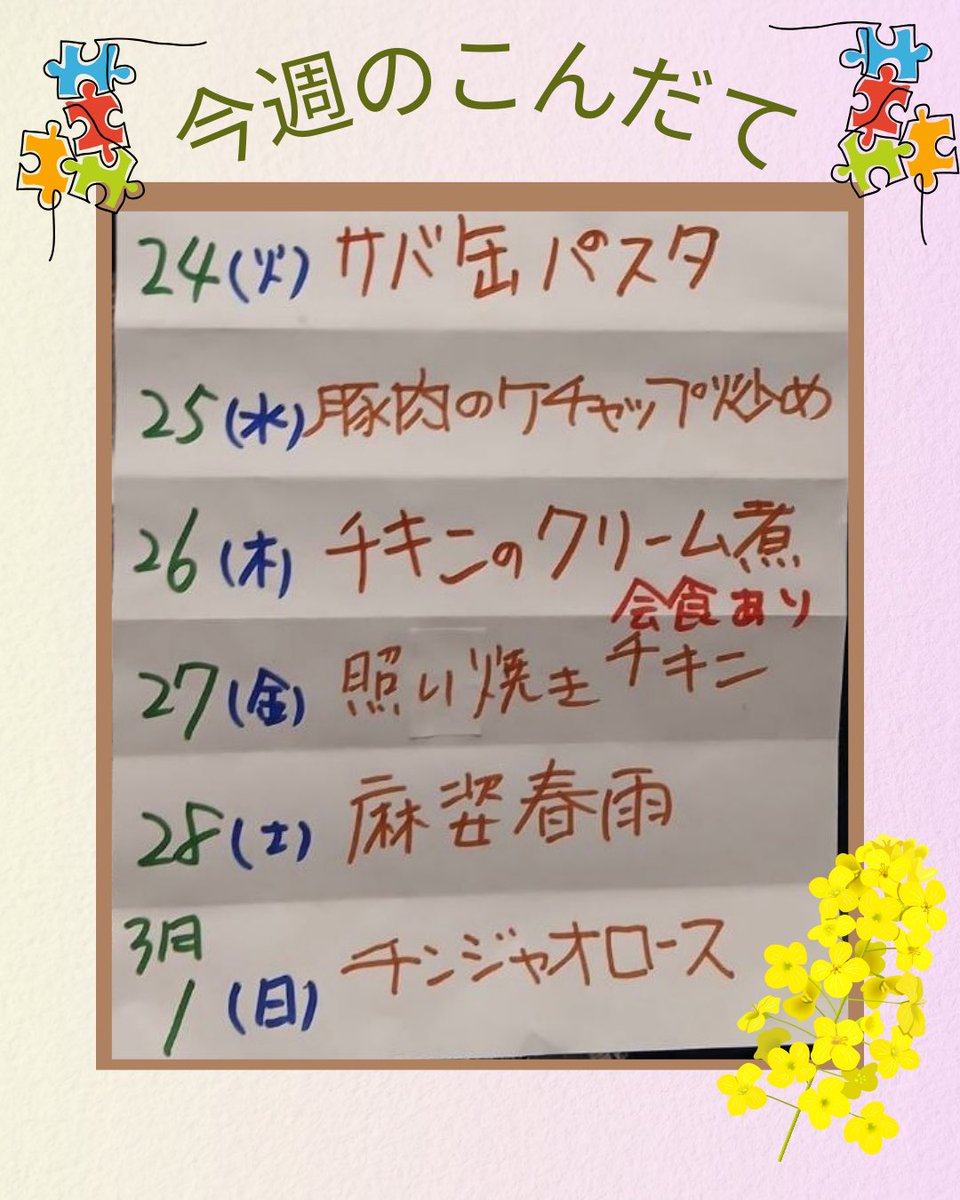 今週のこんだて
24(火) サバ缶パスタ
25(水) 豚肉のケチャップ炒め
26(木) チキンのクリーム煮
会食あり
27(金) 照り焼きチキン
28(土) 麻婆春雨
3月
1(日) チンジャオロース